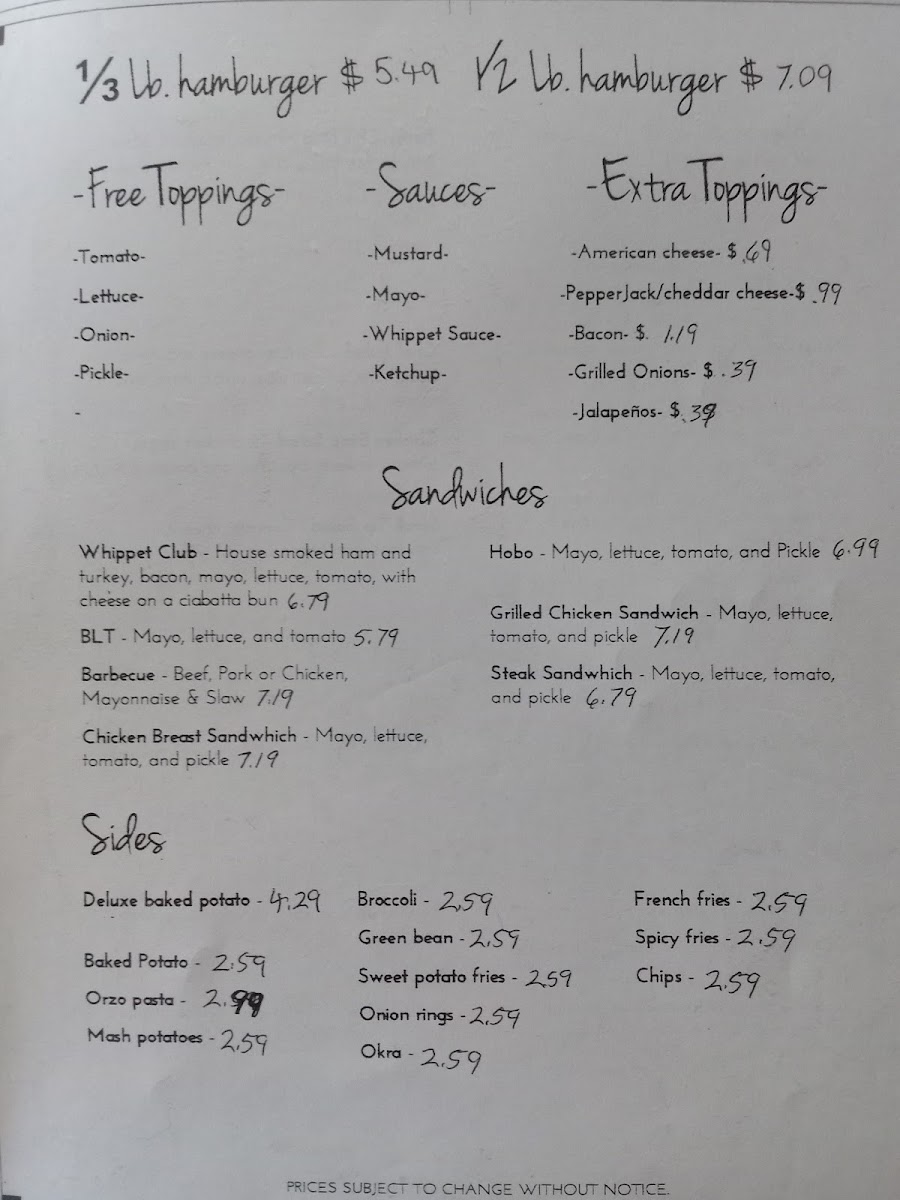 1/3 Lb. hamburger $ 5.49 1/2 Lb. hamburger $ 7.09
-Free Toppings-
-Tomato-
-Lettuce-
-Onion-
-Pickle-
-
-Sauces-
-Mustard-
-Mayo-
-Whippet Sauce-
-Ketchup-
-Extra Toppings-
-American cheese- $ .69
-PepperJack/cheddar cheese-$ .99
-Bacon- $. 1.19
-Grilled Onions- $ .39
-Jalapeños- $.39
Sandwiches
Whippet Club - House smoked ham and
turkey, bacon, mayo, lettuce, tomato, with
cheese on a ciabatta bun 6.79
BLT - Mayo, lettuce, and tomato 5.79
Barbecue - Beef, Pork or Chicken,
Mayonnaise & Slaw 7.19
Chicken Breast Sandwhich - Mayo, lettuce,
tomato, and pickle 7.19
Hobo - Mayo, lettuce, tomato, and Pickle 6.99
Grilled Chicken Sandwich - Mayo, lettuce,
tomato, and pickle 7.19
Steak Sandwhich - Mayo, lettuce, tomato,
and pickle 6.79
Sides
Deluxe baked potato - 4.29
Baked Potato - 2.59
Orzo pasta - 2.99
Mash potatoes - 2.59
Broccoli - 2.59
Green bean - 2.59
Sweet potato fries - 2.59
Onion rings - 2.59
Okra - 2.59
French fries - 2.59
Spicy fries - 2.59
Chips - 2.59
PRICES SUBJECT TO CHANGE WITHOUT NOTICE.